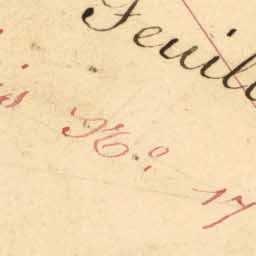 Feuil
is No. 17